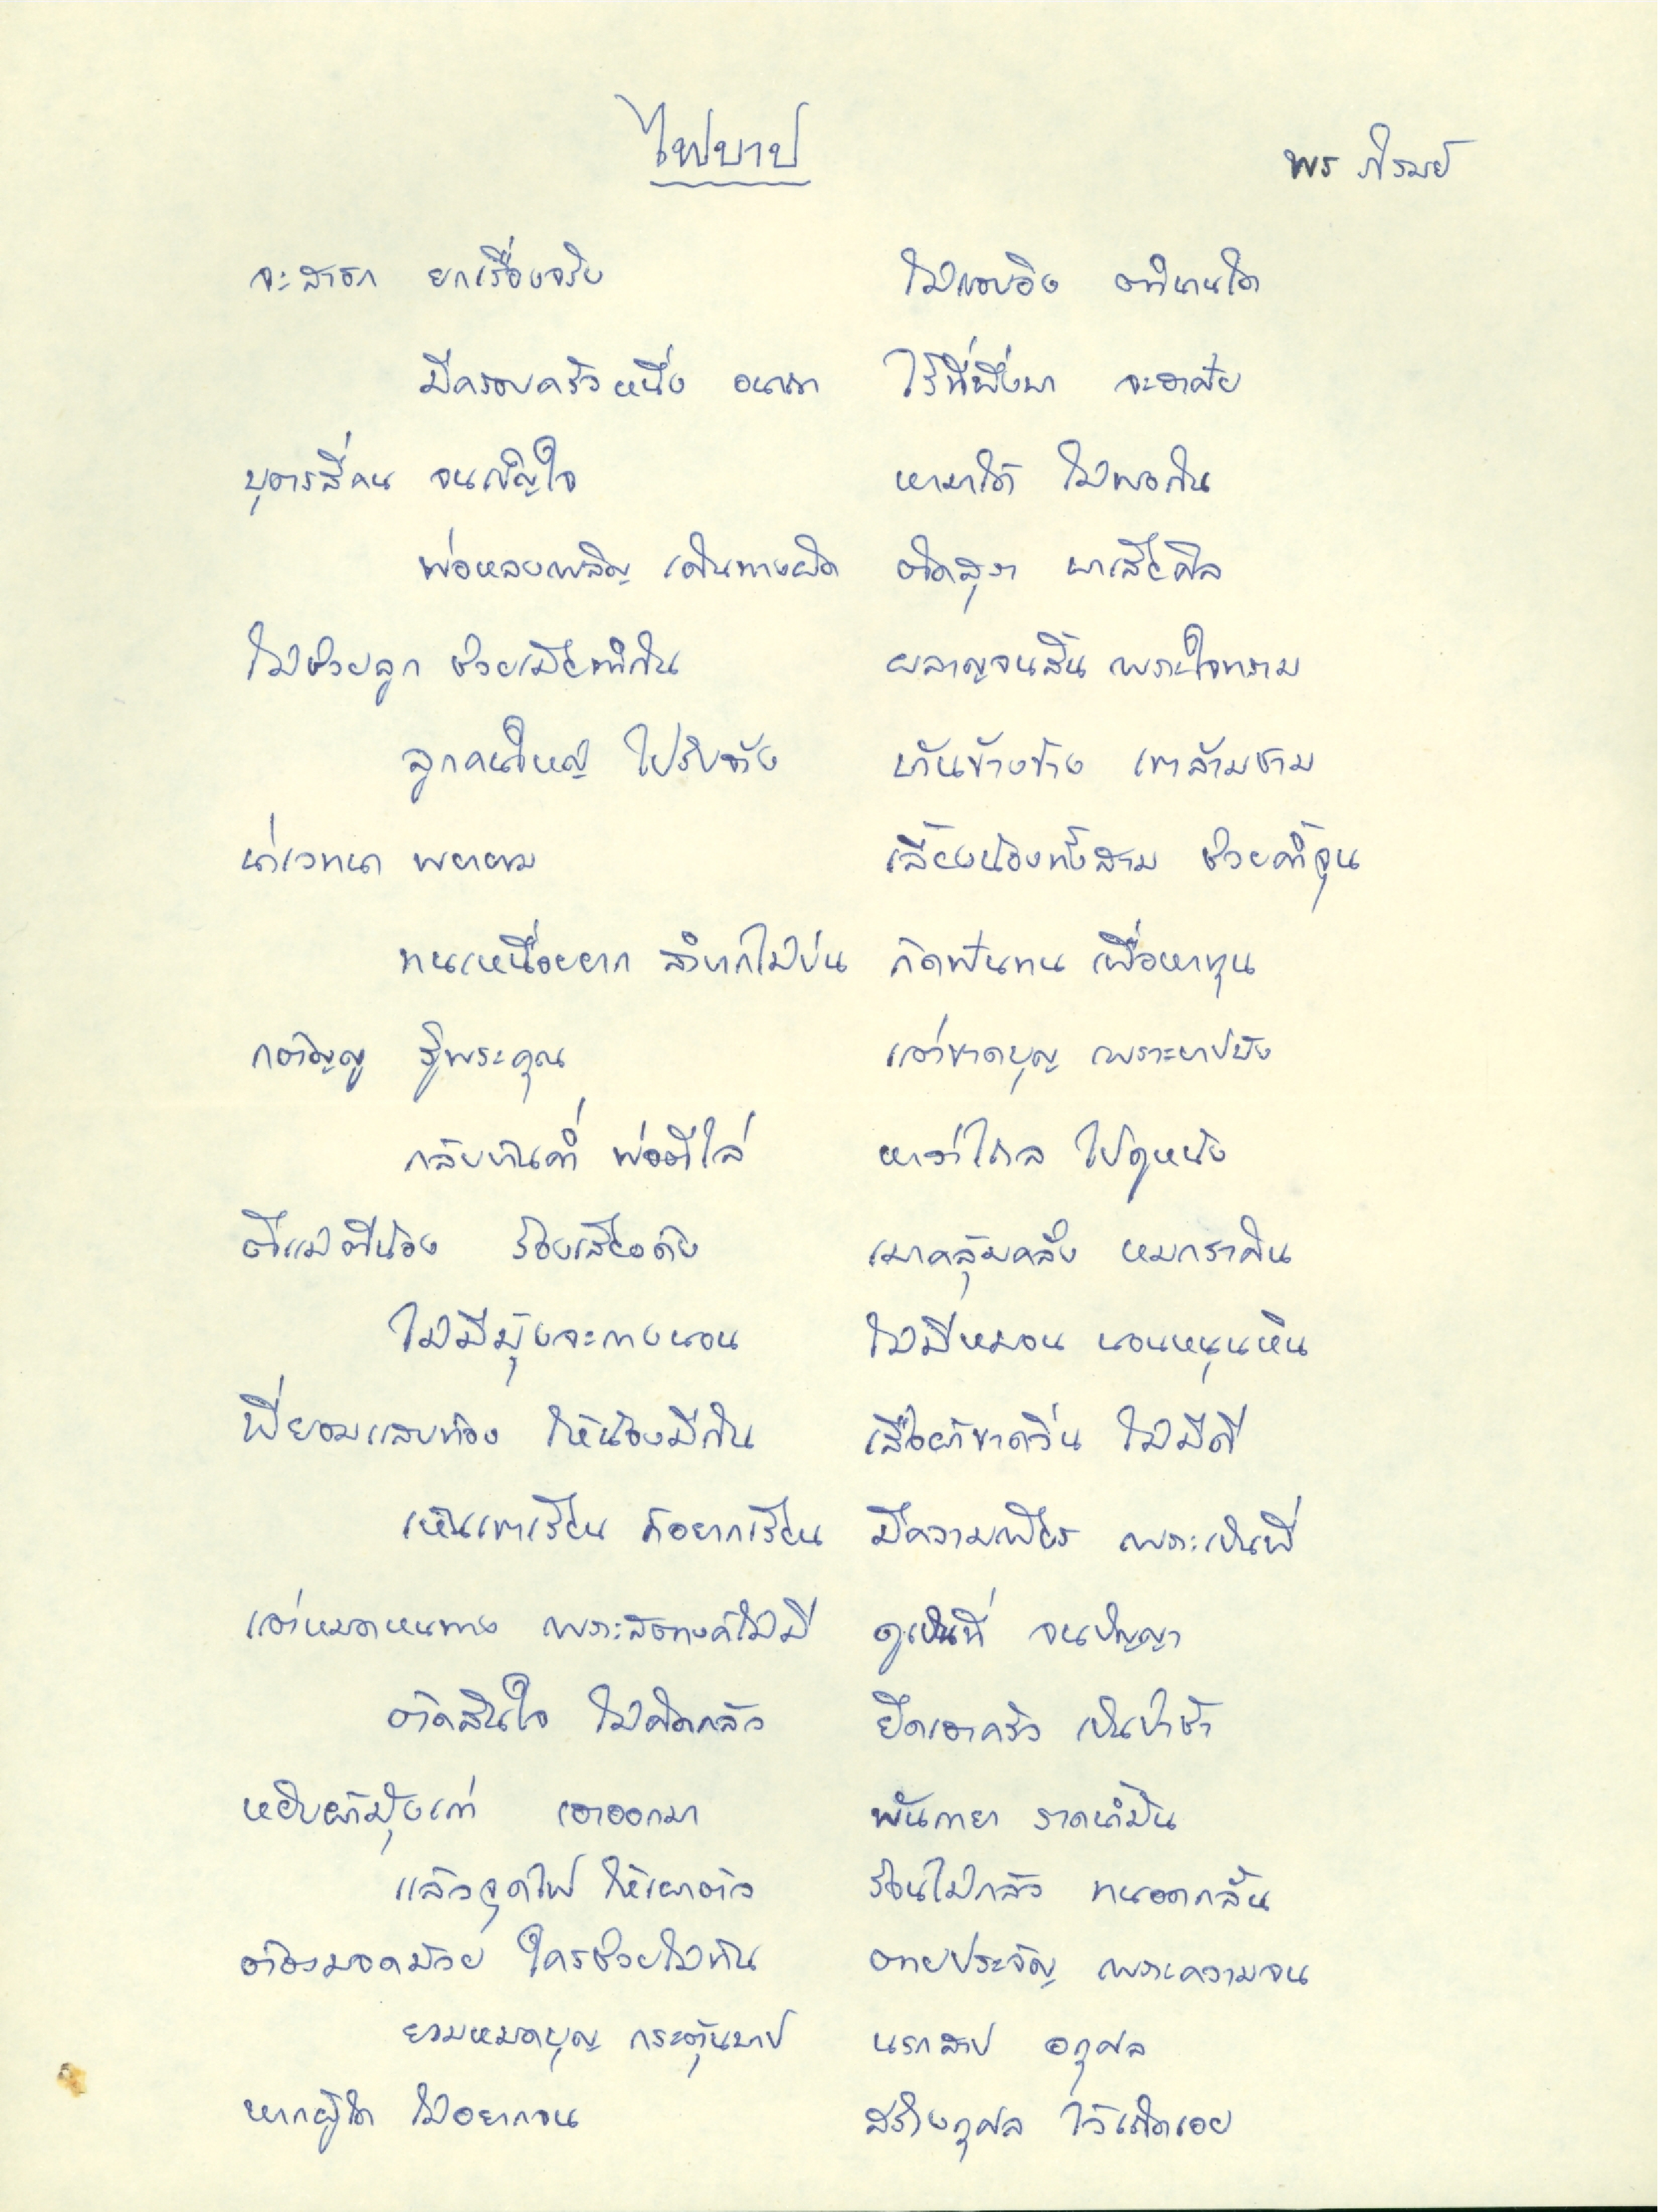 ไฟบาป
พร ภิรมย์
จะสาธก ยกเรื่องจริง ไม่แอบอิง ตำนานใด
มีครอบครัวหนึ่ง อนาถา ไร้ที่พึ่งพา จะอาศัย
บุตรสี่คน จนเข็ญใจ หามาได้ ไม่พอกิน
พ่อหลงเพลิน เดินทางผิด ติดสุรา พาเสียศีล
ไม่ช่วยลูก ช่วยเมียทำกิน ผลาญจนสิ้น เพราะใจทราม
ลูกคนใหญ่ ไปรับจ้าง ทำนข้างข้าง เขาล้างชาม
น่าเวทนา พยายาม เลี้ยงน้องทั้งสาม ช่วยค้ำจุน
ทนเหนื่อยยาก ลำบากไม่บ่น กัดฟันทน เพื่อหาทุน
กตัญญู รู้พระคุณ แต่ขาดบุญ เพราะบาปบัง
กลับบ้านค่ำ พ่อตีไล่ หาว่าไถล ไปดูหนัง
ตีแม่ตีน้อง ร้องเสียงดัง เมาคลุ้มคลั่ง หมดราคิน
ไม่มีมุ้งจะกางนอน ไม่มีหมอน นอนหนุนหิน
พี่ยอมแสบท้อง ให้น้องมีกิน เสื้อผ้าขาดวิ่น ไม่มีดี
เห็นเขาเรียน ก็อยากเรียน มีความเพียร เพราะเป็นพี่
แต่หมดหนทาง เพราะสตางค์ไม่มี ดูเป็นที่ จนปัญญา
ตัดสินใจ ไม่คิดกลัว ยึดเอาครัว เป็นป่าช้า
หยิบผ้ามุ้งเก่า เอาออกมา พันกายา ราดน้ำมัน
แล้วจุดไฟ ให้เผาตัว ร้อนไม่กลัว ทนอดกลั้น
ต้องมอดม้วย ใครช่วยไม่ทัน ตายประจัญ เพราะความจน
ยามหมดบุญ กระตุ้นบาป นรกสาป อกุศล
หากผู้ใด ไม่อยากจน สร้างกุศล ไว้เถิดเอย